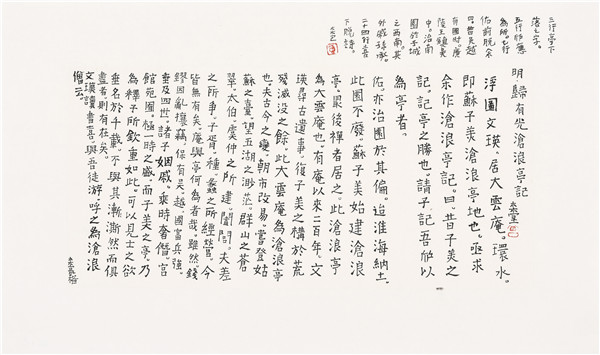 三行亭下
落之字。
佑前脫余
曰昔吳越
有國時廣
陵王鎮吳
中。治南
園於子城
之西南。其
外戚孫承
二十四行喜
下脫詩。
明歸有光滄浪亭記
浮圖文瑛。居大雲庵。環水。
即蘇子美滄浪亭地也。亟求
余作滄浪亭記。曰。昔子美之
記。記亭之勝也。請子記吾所以
為亭者。
佑。亦治園於其偏。迨淮海納土。
此園不廢。蘇子美始建滄浪
亭。最後禪者居之。此滄浪亭
為大雲庵也。有庵以來二百年。文
瑛尋古遺事。復子美之構於荒
殘滅沒之餘。此大雲庵為滄浪亭
也。夫古今之變。朝市改易。嘗登姑
蘇之臺。望五湖之渺茫。群山之蒼
翠。太伯。虞仲之所建。闔閭。夫差
之所爭。子胥。種。蠡之所經營。今
皆無有矣。庵與亭何為者哉。雖然。錢
鏐因亂攘竊。保有吳。越國富兵強。
垂及四世。諸子姻戚。乘時奢僭。宮
館苑囿。極一時之盛。而子美之亭。乃
為釋子所欽重如此。可以見士之欲
垂名於千載。不與其澌然而俱
盡者。則有在矣。
文瑛讀書喜。與吾徒游。呼之為滄浪
僧云。